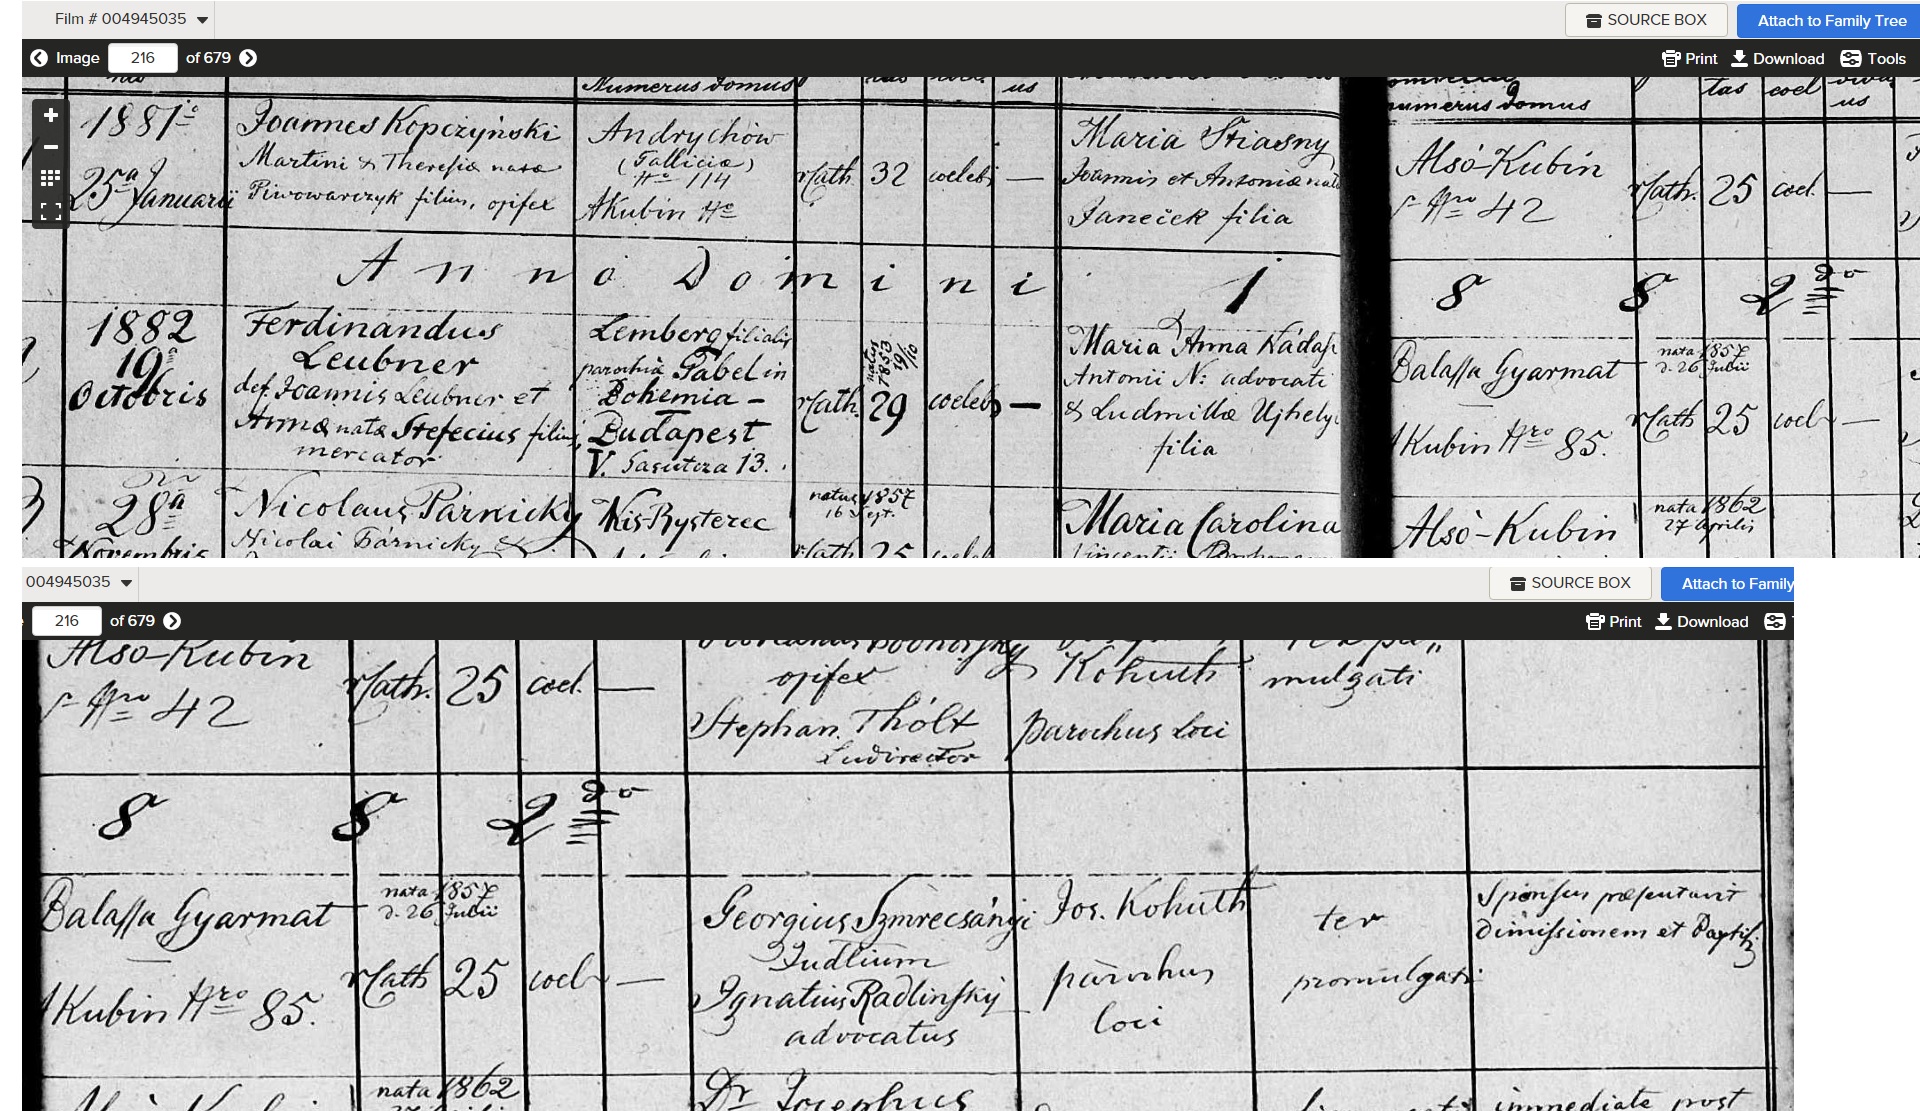 Film # 004945035
SOURCE BOX
Attach to Family Tree
Image 216 of 679
Print Download Tools
Numerus domus
us
numerus domus
tas coel
us
1881
25a Januarii
Joannes Kopczyński
Martini & Theresiæ natæ
Piwowarczyk filius, opifex
Andrychów
(Galliciæ)
Nro 114
AKubin Nro
rCath. 32 coelebs —
Maria Stiasny
Joannis et Antoniæ natæ
Janeček filia
Alsó-Kubin
Nro 42
rCath. 25 coel. —
Anno Domini 1882do
1882
19
Octobris
Ferdinandus
Leubner
def. Joannis Leubner et
Annæ natæ Stefecius filius
mercator
Lemberg filialis
parochiæ Gabel in
Bohemia –
Budapest
V. Sasutcza 13.
natus
1853
19/10
rCath. 29 coelebs —
Maria Anna Nádas
Antonii N: advocati
& Ludmillæ Ujhely
filia
Balassa Gyarmat
AKubin Nro 85.
nata 1857
d. 26 Julii
rCath 25 coel —
28a
Novembris
Nicolaus Párnicky
Nicolai Párnicky &
Kis-Byszterec
natus 1857
16 Sept.
rCath 25 coeleb
Maria Carolina
Vincentii
Alsó-Kubin
nata 1862
27 Aprilis
004945035
SOURCE BOX
Attach to Family
216 of 679
Print Download
Alsó-Kubin
Nro 42
rCath. 25 coel. —
opifex
Stephan. Thólt
Ludirector
Kohuth
parochus loci
mulgati
8 8 2do
Balassa Gyarmat
AKubin Nro 85.
nata 1857
d. 26 Julii
rCath 25 coel —
Georgius Szmrecsányi
Judlium
Ignatius Radlinský
advocatus
Jos. Kohuth
parochus
loci
ter
promulgati
Sponsus præsentavit
dimissionem et Baptis
nata 1862
Dr Josephus
immediate post